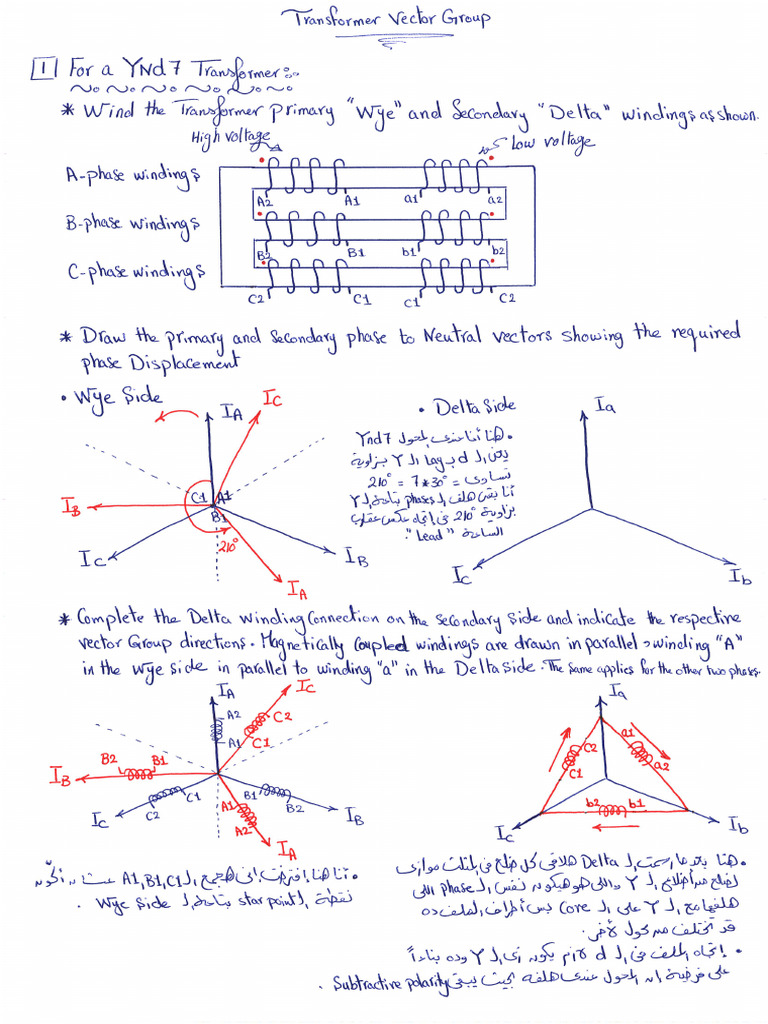 Transformer Vector Group
1 For a YNd7 Transformer:-
* Wind the Transformer primary "Wye" and Secondary "Delta" windings as shown.
High voltage
Low voltage
A-phase windings
A2 A1 a1 a2
B-phase windings
B2 B1 b1 b2
C-phase windings
C2 C1 C1 C2
* Draw the primary and secondary phase to Neutral vectors showing the required
phase Displacement
• Wye Side
IA
IC
C1 A1
B1
IB
210°
IC
IB
IA
• Delta Side
Ia
• هنا أنا عندى المحول Ynd7
يعنى الـ d بها الـ Y بزاوية
تساوى = 30° * 7 = 210°
phases بتاعة الـ Y
بزاوية 210° فى اتجاه عكس عقارب
الساعة "Lead".
Ic
Ib
* Complete the Delta winding Connection on the secondary side and indicate the respective
vector Group directions. Magnetically Coupled windings are drawn in parallel, winding "A"
in the Wye side in parallel to winding "a" in the Delta side. The same applies for the other two phases.
IA
IC
A2
C2
A1 C1
B2 B1
IB
IC
C2 C1
B1 B2
IB
A1
A2
IA
Ia
C2 a1
C1 a2
b2 b1
Ic
Ib
• أنا هنا افترضت إنى هجمع الـ A1,B1,C1 عشان أكون
نقطة الـ star point بتاعة الـ Wye Side.
• هنا بعد ما رسمت الـ Delta هلاقى كل ضلع فى المثلث موازى
لضلع من أضلاع الـ Y واللى هو هيكون نفس الـ phase اللى
هلفها مع الـ Y على الـ Core بس أطراف الملف ده
قد تختلف من محول لآخر.
• إتجاه الملف فى الـ d لازم يكون زى الـ Y وده بناءاً
على فرضية ان المحول عندى هلفه بحيث يبقى Subtractive polarity.